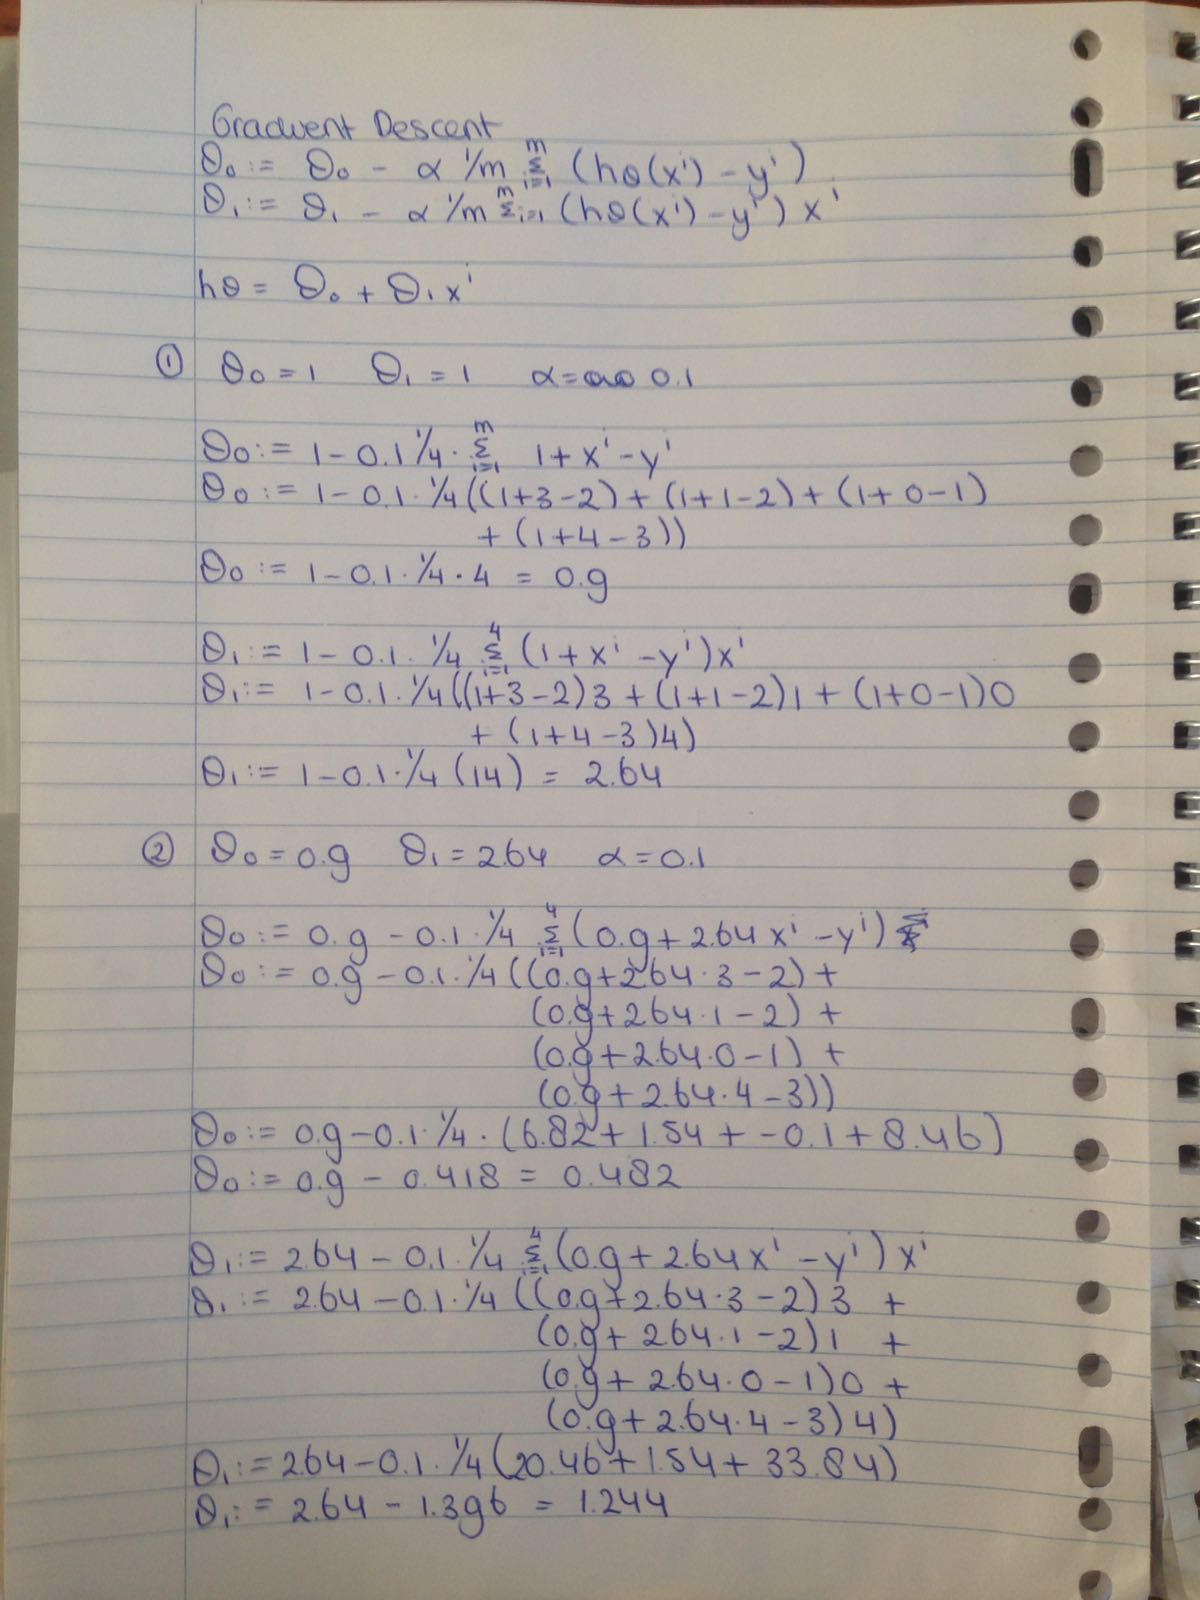 Gradient Descent
θ₀ := θ₀ - α 1/m Σᵢ₌₁ᵐ (hθ(xⁱ) - yⁱ)
θ₁ := θ₁ - α 1/m Σᵢ₌₁ᵐ (hθ(xⁱ) - yⁱ) xⁱ
hθ = θ₀ + θ₁xⁱ
① θ₀ = 1 θ₁ = 1 α = 0.1
θ₀ := 1 - 0.1 1/4 · Σᵢ₌₁ᵐ 1 + xⁱ - yⁱ
θ₀ := 1 - 0.1 · 1/4 ((1+3-2) + (1+1-2) + (1+0-1)
+ (1+4-3))
θ₀ := 1 - 0.1 · 1/4 · 4 = 0.9
θ₁ := 1 - 0.1 · 1/4 Σᵢ₌₁⁴ (1 + xⁱ - yⁱ)xⁱ
θ₁ := 1 - 0.1 · 1/4 ((1+3-2)3 + (1+1-2)1 + (1+0-1)0
+ (1+4-3)4)
θ₁ := 1 - 0.1 · 1/4 (14) = 2.64
② θ₀ = 0.9 θ₁ = 2.64 α = 0.1
θ₀ := 0.9 - 0.1 · 1/4 Σᵢ₌₁⁴ (0.9 + 2.64xⁱ - yⁱ)
θ₀ := 0.9 - 0.1 · 1/4 ((0.9 + 2.64 · 3 - 2) +
(0.9 + 2.64 · 1 - 2) +
(0.9 + 2.64 · 0 - 1) +
(0.9 + 2.64 · 4 - 3))
θ₀ := 0.9 - 0.1 · 1/4 · (6.82 + 1.54 + -0.1 + 8.46)
θ₀ := 0.9 - 0.418 = 0.482
θ₁ := 2.64 - 0.1 · 1/4 Σᵢ₌₁⁴ (0.9 + 2.64xⁱ - yⁱ)xⁱ
θ₁ := 2.64 - 0.1 · 1/4 ((0.9 + 2.64 · 3 - 2)3 +
(0.9 + 2.64 · 1 - 2)1 +
(0.9 + 2.64 · 0 - 1)0 +
(0.9 + 2.64 · 4 - 3)4)
θ₁ := 2.64 - 0.1 · 1/4 (20.46 + 1.54 + 33.84)
θ₁ := 2.64 - 1.396 = 1.244